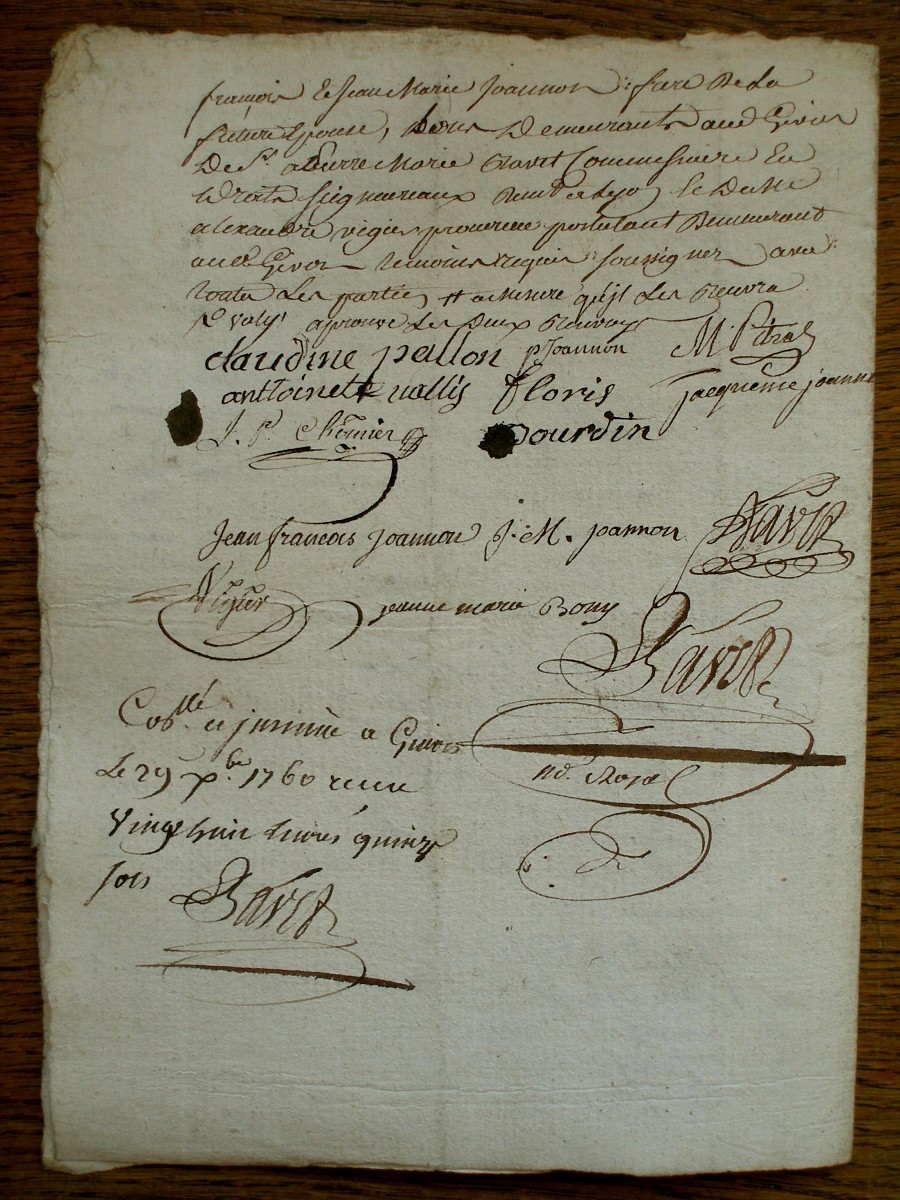 françois & Jean Marie Joannon : frere De La
future Epouse, tous Demeurants aud Givors
De Sr. Marie Ravet Commissaire En
Droits seigneuriaux & De Me
alexandre vigier procureur postulant Demeurant
aud Givors temoins requis soussignez avec
toutes Les parties
aprouve Les Deux
claudine pallon pJoannon M. Pitrat
antToinete vallis floris Jacqueme joannon
J. P. Chemier Dourdin
Jean francois Joannon J. M. joannon Ravet
Vigier jeanne marie Bony
Ravet
Coslle et a Givors
Le 29 xbre 1760 recu
Vingt huit livres quinze
sols
nre. Royal
Ravet